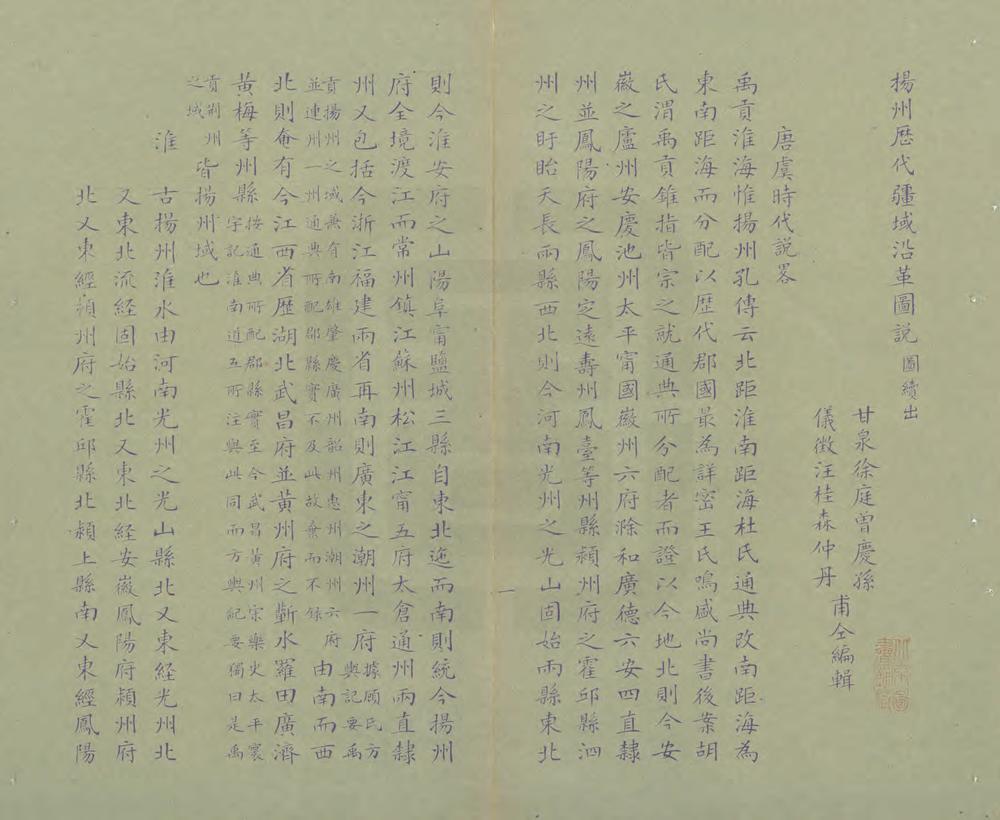 揚州歷代疆域沿革圖說 圖續出
甘泉徐庭曾慶孫
儀徵汪桂森仲丹 甫仝編輯
唐虞時代說畧
禹貢淮海惟揚州孔傳云北距淮南距海杜氏通典改南距海為
東南距海而分配以歷代郡國最為詳密王氏鳴盛尚書後案胡
氏渭禹貢錐指皆宗之就通典所分配者而證以今地北則今安
徽之廬州安慶池州太平甯國徽州六府滁和廣德六安四直隸
州並鳳陽府之鳳陽定遠壽州鳳臺等州縣潁州府之霍邱縣泗
州之盱眙天長兩縣西北則今河南光州之光山固始兩縣東北
一
則今淮安府之山陽阜甯鹽城三縣自東北迤而南則統今揚州
府全境渡江而常州鎮江蘇州松江江甯五府太倉通州兩直隸
州又包括今浙江福建兩省再南則廣東之潮州一府據顧氏方輿記要禹
貢揚州之域兼有南雄肇慶廣州韶州惠州潮州六府
並連州一州通典所配郡縣實不及此故棄而不錄由南而西
北則奄有今江西省歷湖北武昌府並黃州府之蘄水羅田廣濟
黃梅等州縣按通典所配郡縣實至今武昌黃州宋樂史太平寰
宇記淮南道五所注與此同而方輿紀要獨曰是禹
貢荆州
之域皆揚州域也
淮 古揚州淮水由河南光州之光山縣北又東經光州北
又東北流經固始縣北又東北經安徽鳳陽府潁州府
北又東經潁州府之霍邱縣北潁上縣南又東經鳳陽